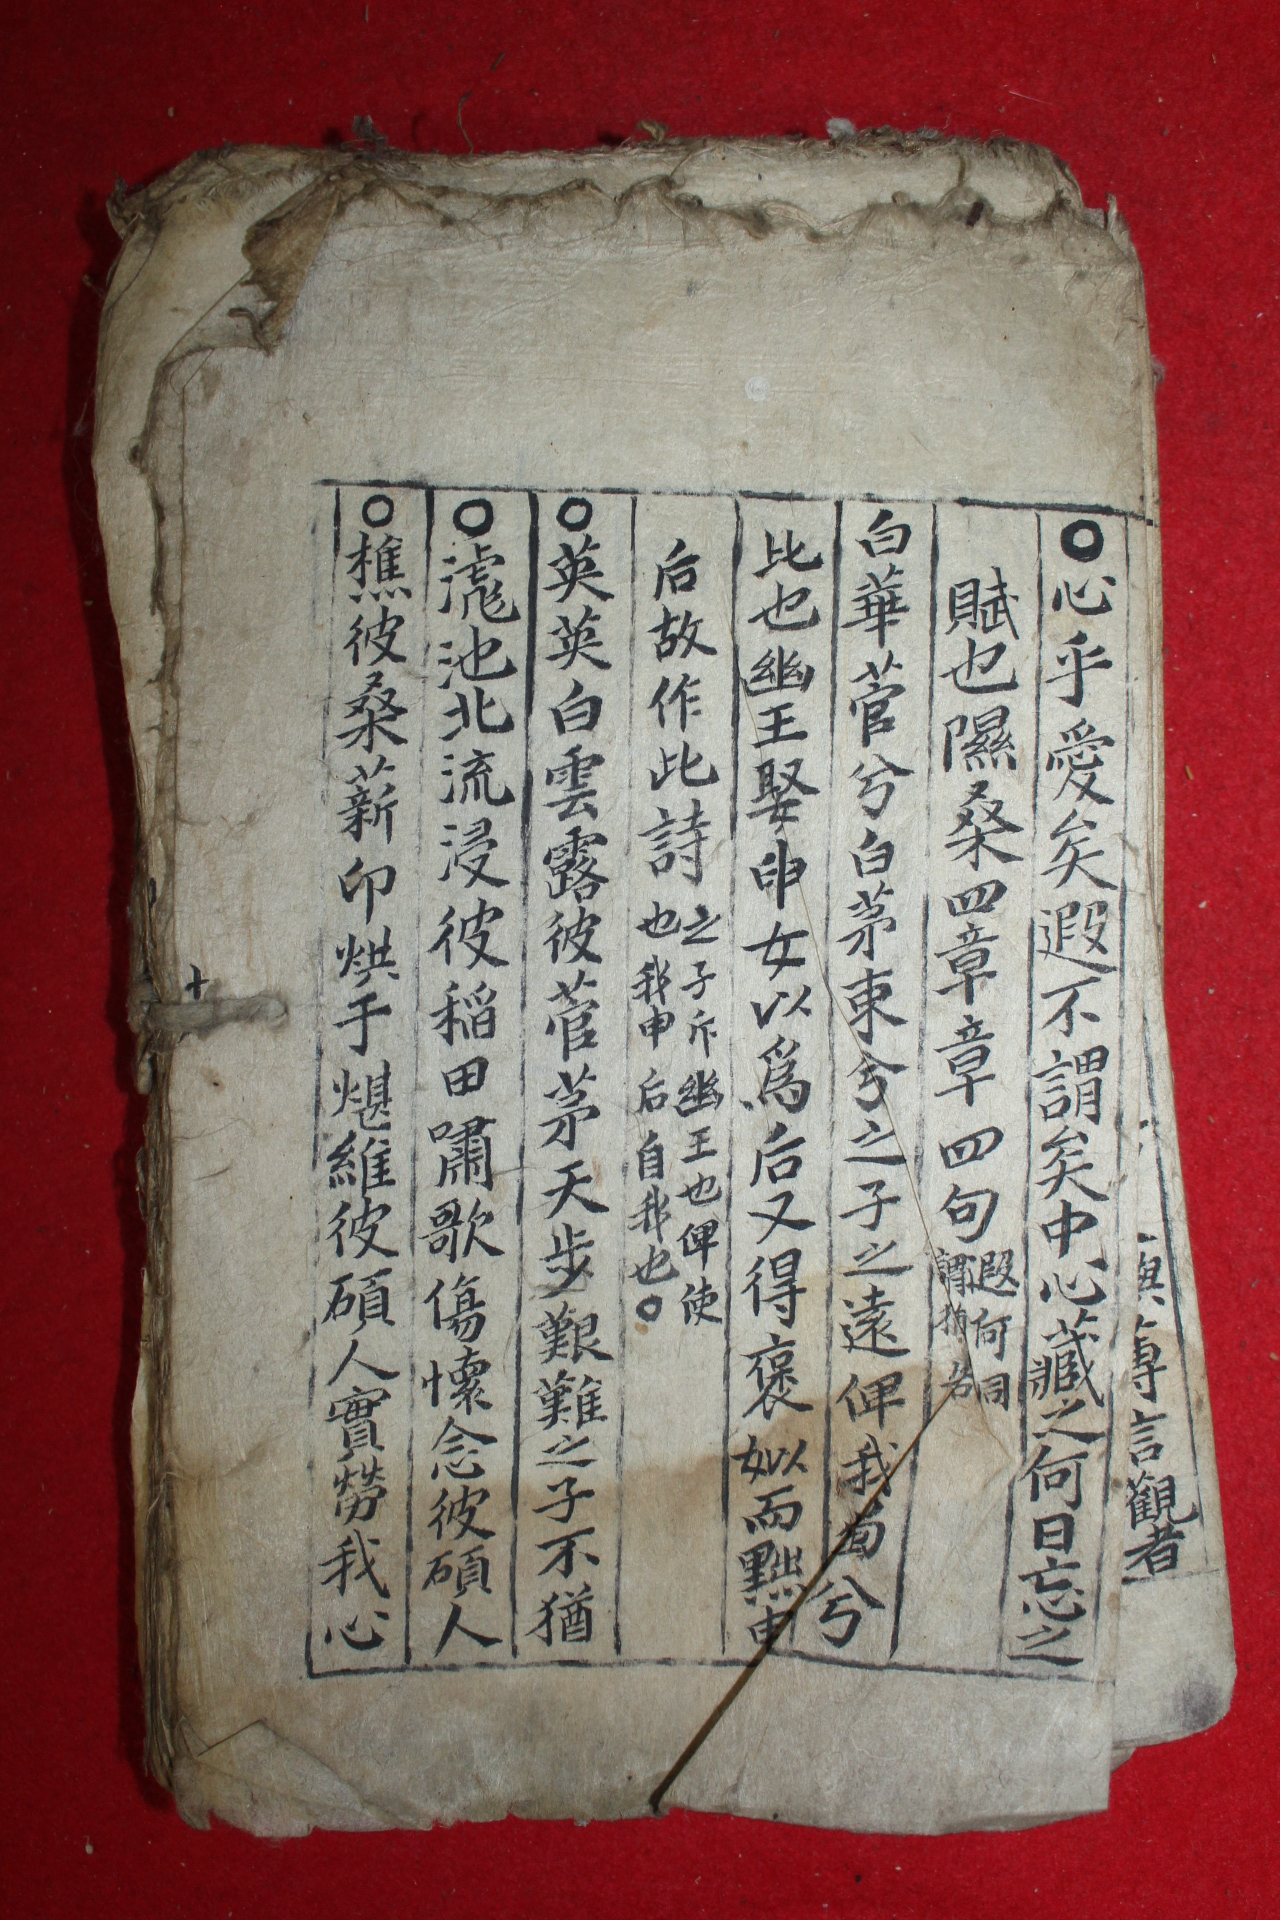 ○心乎愛矣遐不謂矣中心藏之何日忘之
賦也隰桑四章章四句遐何同
謂猶若
白華菅兮白茅束兮之子之遠俾我獨兮
比也幽王娶申女以爲后又得褒姒而黜申
后故作此詩之子斥幽王也俾使
也我申后自我也○
○英英白雲露彼菅茅天步艱難之子不猶
○滮池北流浸彼稻田嘯歌傷懷念彼碩人
○樵彼桑薪卬烘于煁維彼碩人實勞我心
薄言觀者